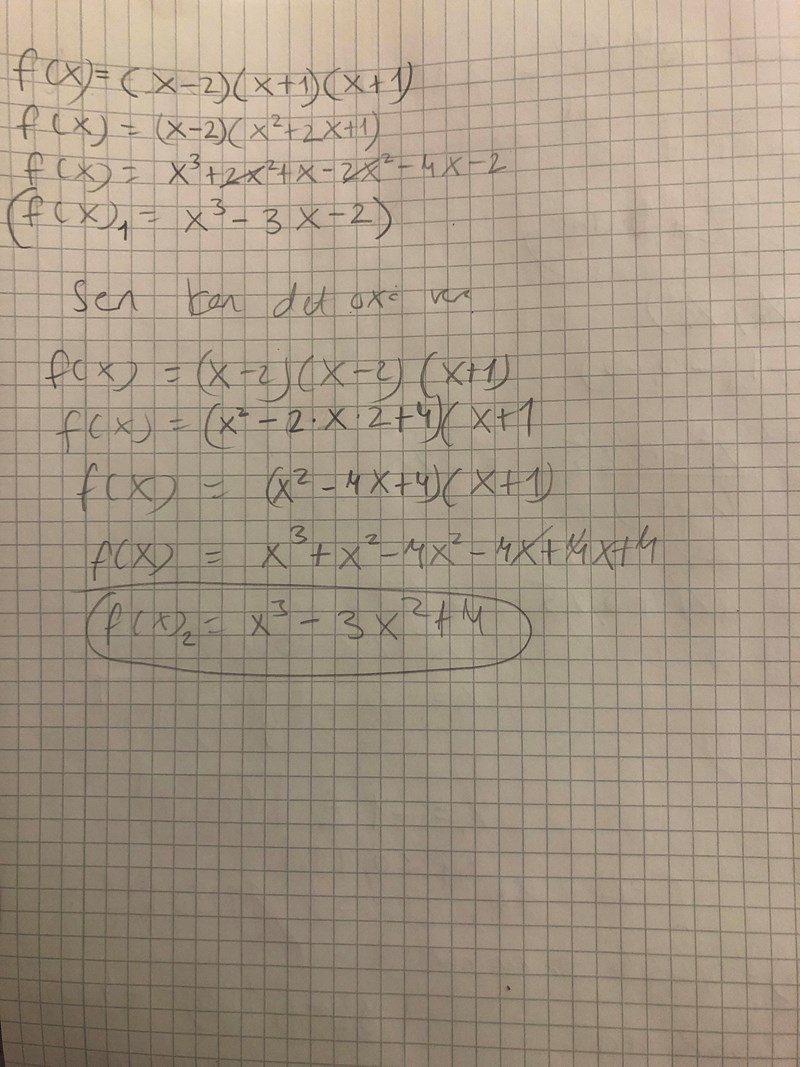 f(x) = (x-2)(x+1)(x+1)
f(x) = (x-2)(x²+2x+1)
f(x) = x³+2x²+x-2x²-4x-2
(f(x)₁ = x³-3x-2)
Sen kan det
f(x) = (x-2)(x-2)(x+1)
f(x) = (x²-2·x·2+4)(x+1
f(x) = (x²-4x+4)(x+1)
f(x) = x³+x²-4x²-4x+4x+4
f(x)₂ = x³-3x²+4